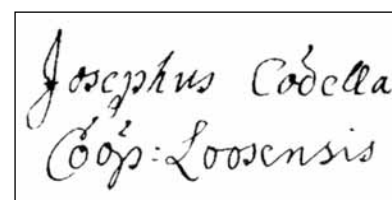 Josephus Codella
Coop: Loosensis